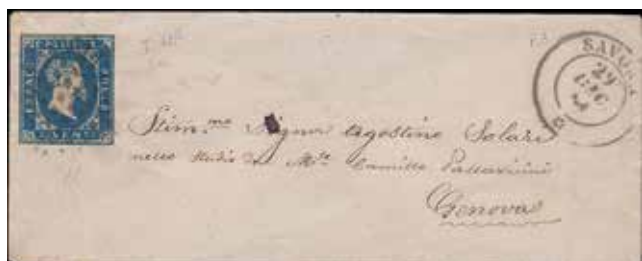 SAVONA
29
LUG
FRANCO
C. VENTI
Stim.mo Signor Agostino Solari
nello Studio del M.se Camillo Pallavicini
Genova